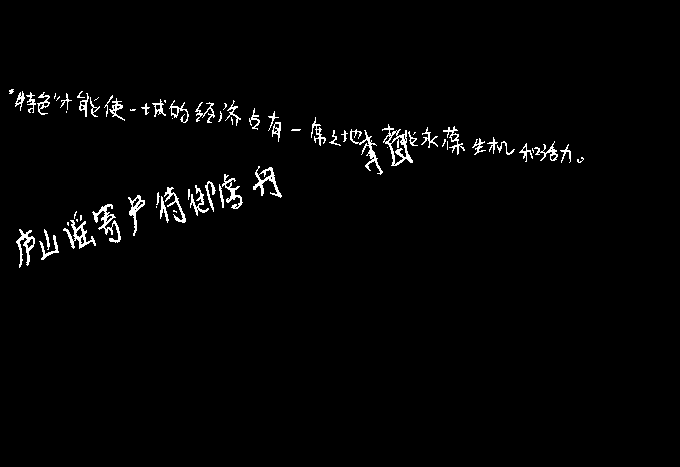 "特色"才能使一域的经济占有一席之地 能永葆生机和活力。
李
庐山谣寄卢侍御虚舟